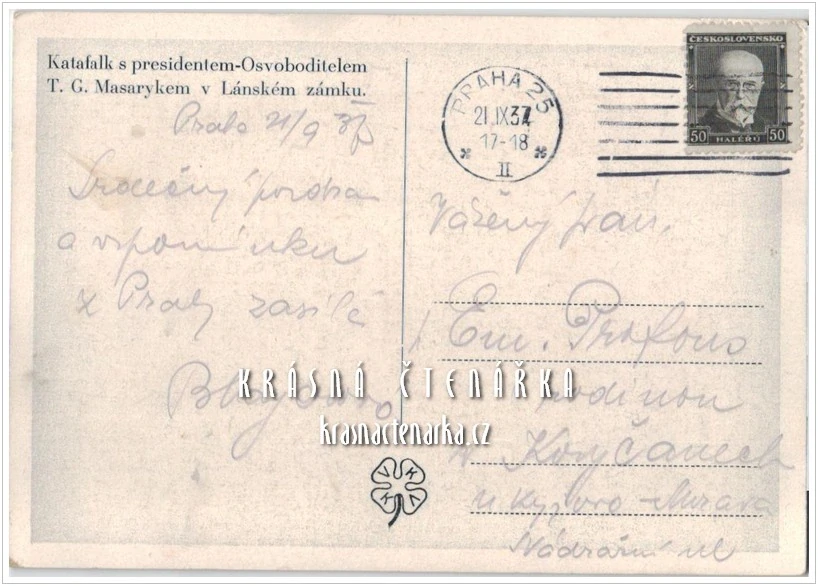 Katafalk s presidentem-Osvoboditelem
T. G. Masarykem v Lánském zámku.
ČESKOSLOVENSKO
50 HALÉŘŮ 50
PRAHA 25
21.IX.37
17-18
II
Praha 21/9 37
Srdečný pozdrav
a vzpomínku
z Prahy zasílá
Vážený pan
Em.
rodinou
v Koryčanech
u Kyjova - Morava
Nádražní ul
KRÁSNÁ ČTENÁŘKA
krasnactenarka.cz
V K
K V